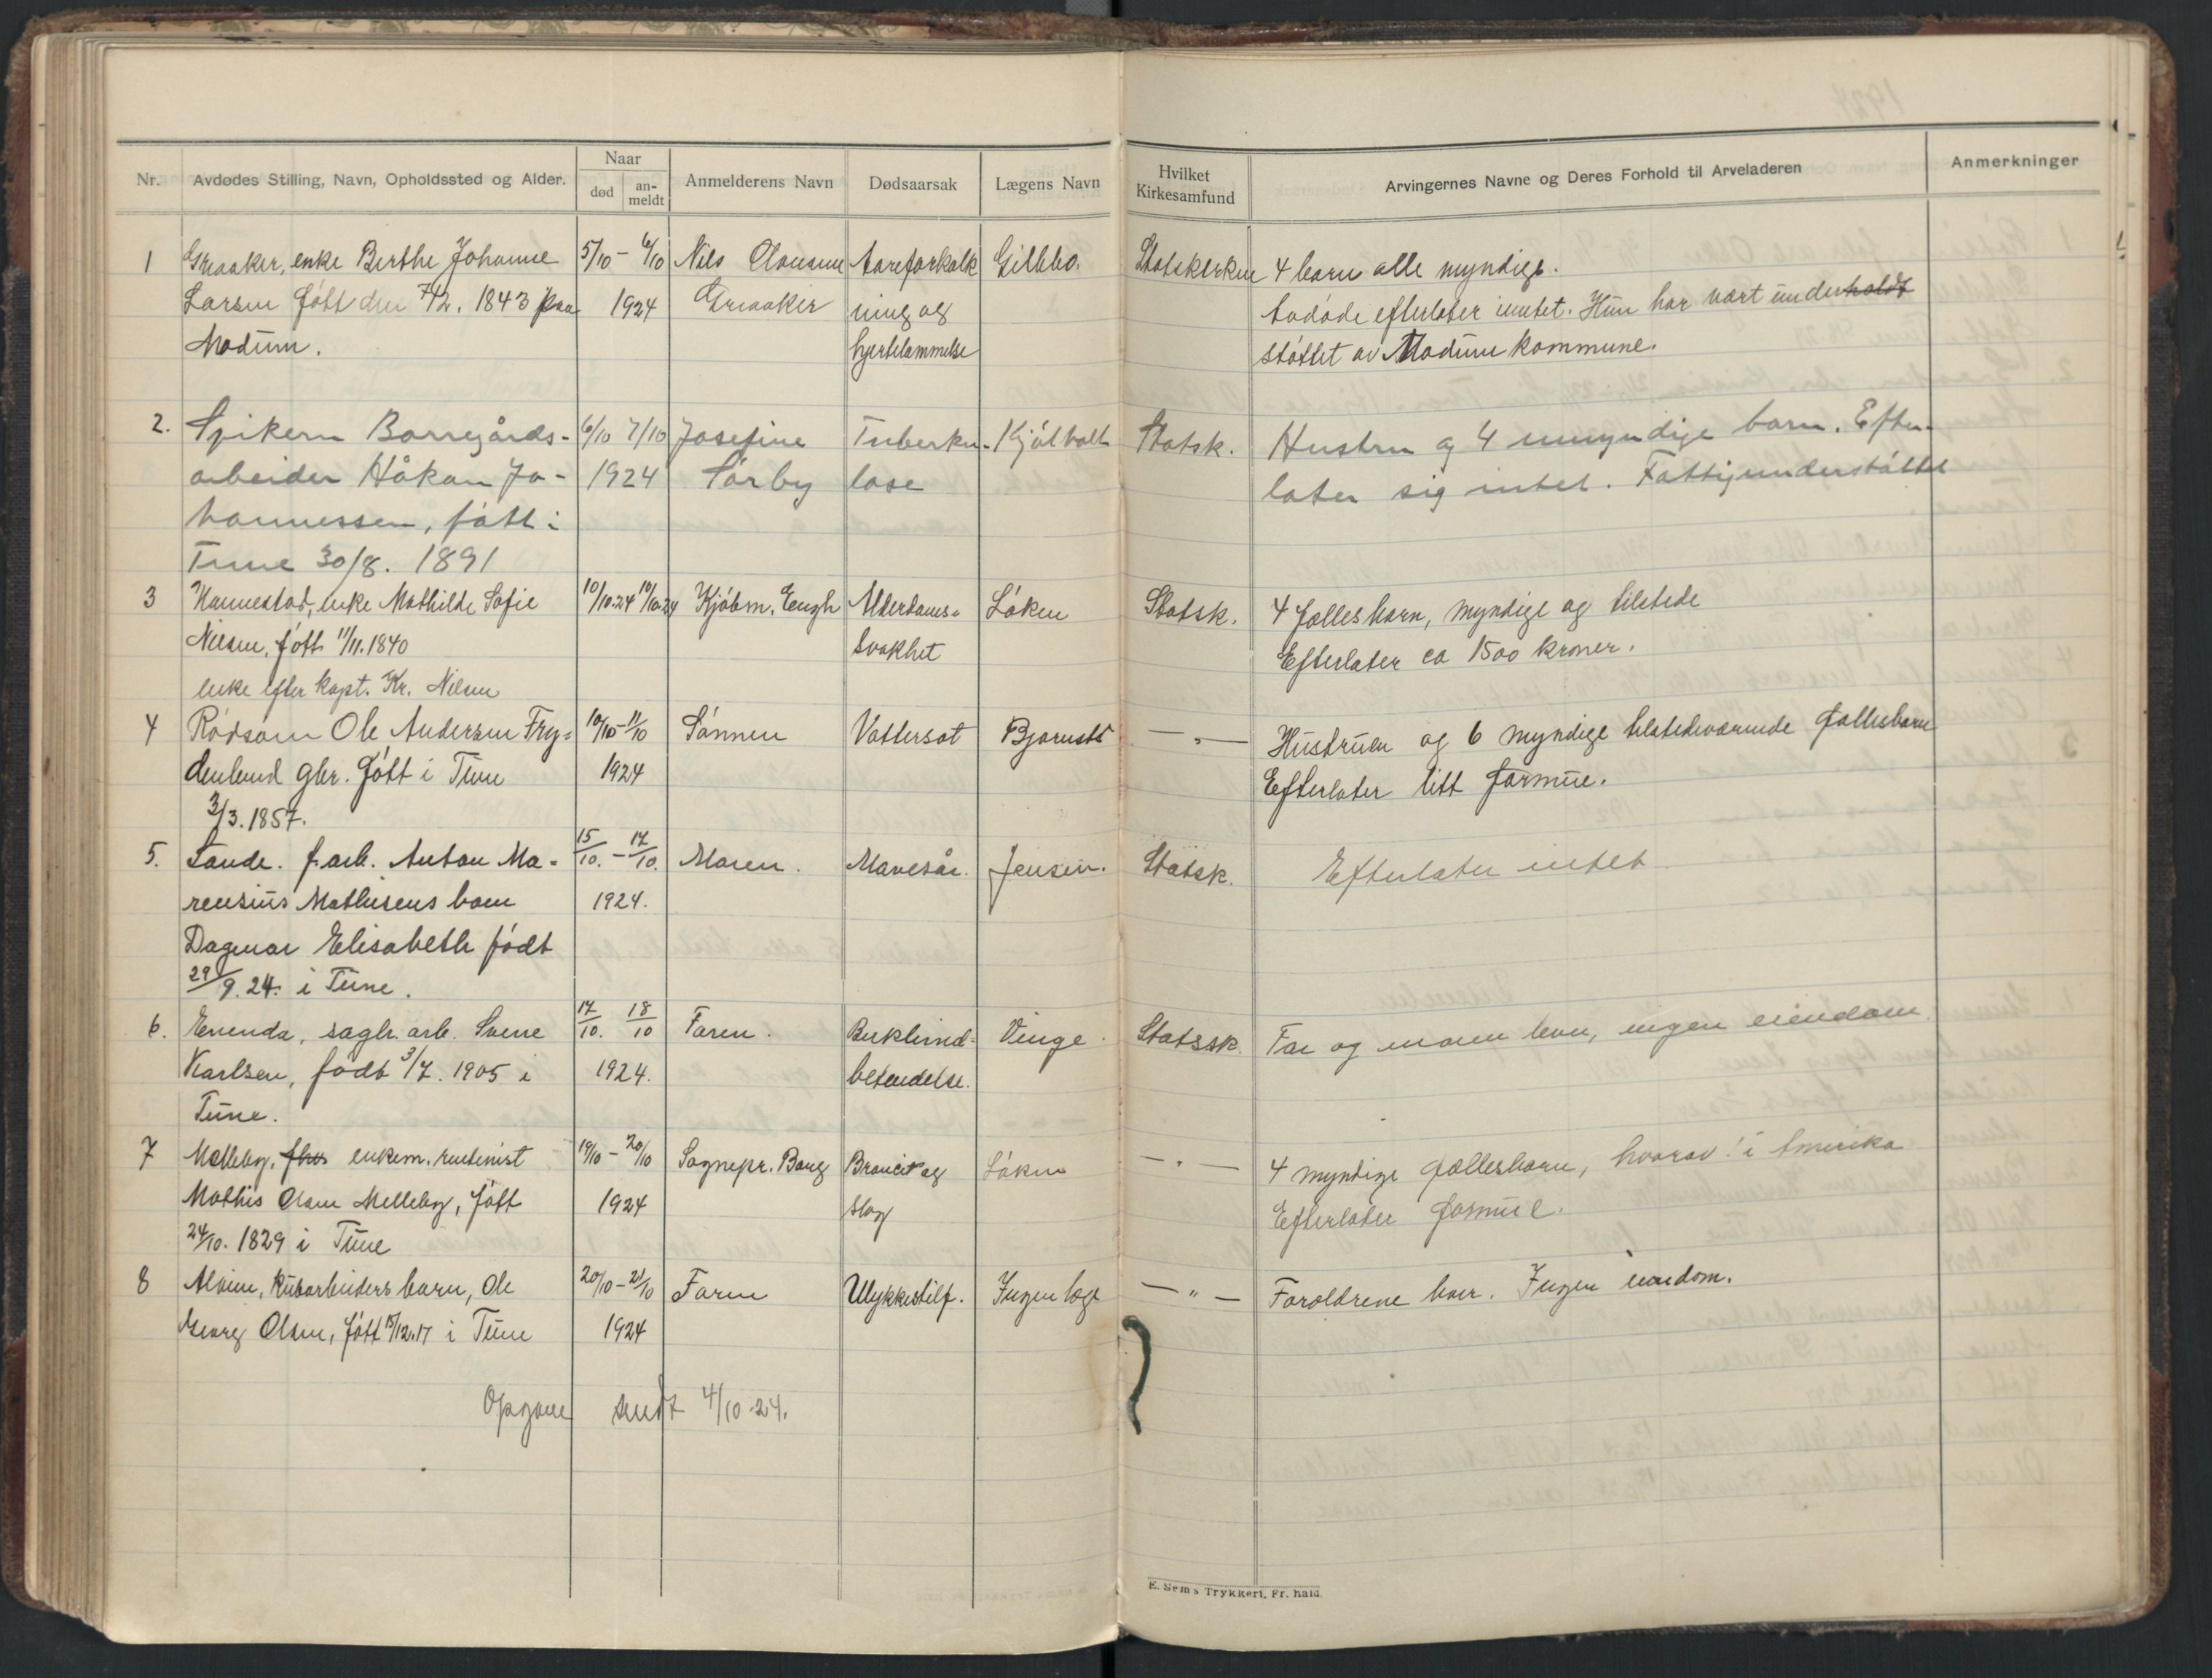 1924
Nr.
Avdødes Stilling, Navn, Opholdssted og Alder.
Naar
død
an-
meldt
Anmelderens Navn
Dødsaarsak
Lægens Navn
Hvilket
Kirkesamfund
Arvingernes Navne og Deres Forhold til Arveladeren
Anmerkninger
1 Greaaker, enke Berthe Johanne 5/10 - 6/10 Nils Aareforkalk Gillebo. Statskirken 4 barn alle myndige.
Larsen født den 7/12. 1843 paa 1924 Greaaker ning og Avdøde efterlater intet. Hun har vært underholdt
Modum. hjertelammelse støttet av Modum kommune.
2. Spikern Borregårds- 6/10 7/10 Josefine Tuberku- Kjølholt Statsk. Hustru og 4 umyndige barn. Efter-
arbeider Håkon Jo- 1924 Sørby lose later sig intet. Fattigunderstøttet
hannessen, født i
Tune 30/8. 1891
3 Hannestad, enke Mathilde Sofie 10/10.24 10/10.24 Kjøbm. Eengh Alderdoms- Løken Statsk. 4 fellesbarn, myndige og tilstede
Nilsen, født 11/11.1840 svakhet Efterlater ca 1500 kroner.
enke efter kapt. Kr. Nilsen
4 Rødsøm Ole Andersen Fry- 10/10 - 11/10 Sønnen Vattersot — „ — Hustruen og 6 myndige tilstedeværende fellesbarn
denlund gbr. født i Tune 1924 Efterlater litt formue.
3/3. 1857.
5. Sande. f.arb. Anton Ma- 15/10. - 17/10. Moren. Mavesår. Jensen. Statsk. Efterlater intet
rensius Mathisens barn 1924.
Dagmar Elisabeth født
29/9.24. i Tune.
6. Enenda, sagbr. arb. Sverre 17/10. 18/10 Faren. Bukhind- Vinge. Statssk. Far og moren lever, ingen eiendom
Karlsen, født 3/7. 1905 i 1924. betendelse.
Tune.
7 Melleby, enkem. rentenist 19/10 - 20/10 Sognepr. Bang Broncit og Løken — „ — 4 myndige fellesbarn, hvorav 1 i Amerika
Mathis Olsen Melleby, født 1924 slag Efterlater formue.
24/10. 1829 i Tune
8 Alvim, barn, Ole 20/10 - 21/10 Faren Ulykkestilf. Ingen læge — „ — Foreldrene lever. Ingen eiendom.
Georg Olsen, født 15/12.17 i Tune 1924
Opgave sendt 4/10-24.
E. Sem's Trykkeri, Fr. hald.